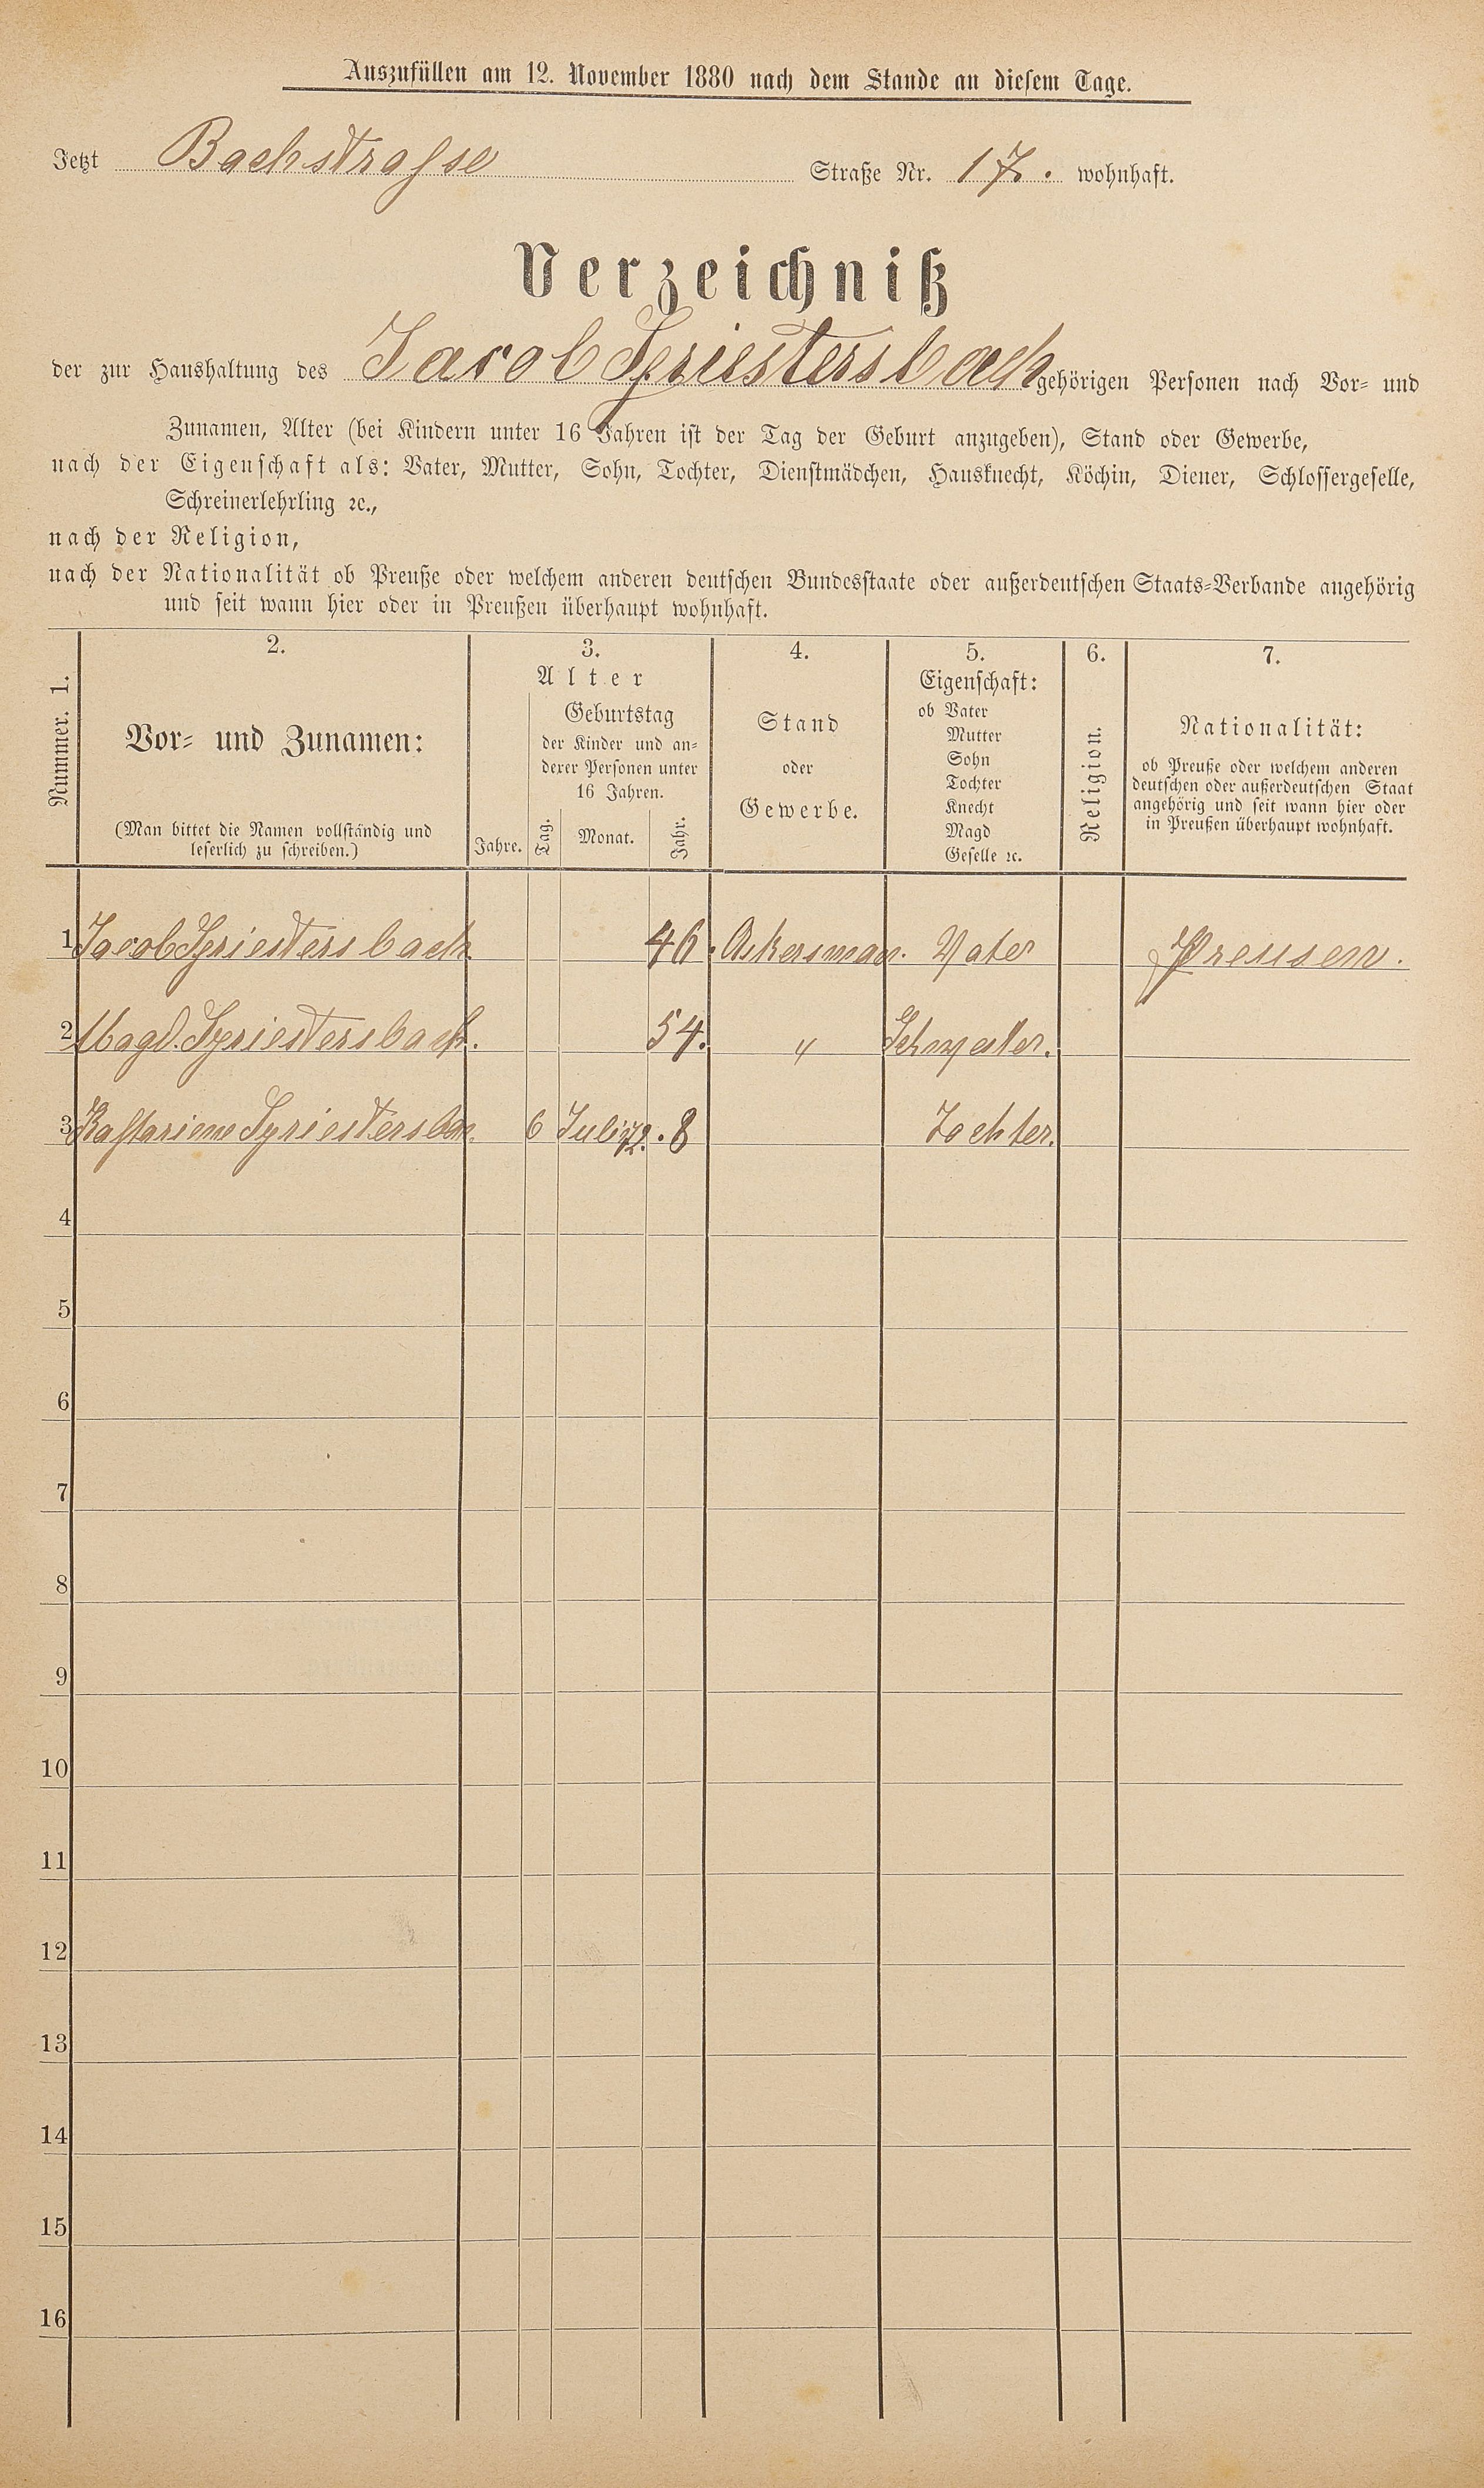 Auszufüllen am 12. November 1880 nach dem Stande an diesem Tage.
Jetzt Bachstrasse Straße Nr. 17. wohnhaft.
Verzeichniß
der zur Haushaltung des Jacob gehörigen Personen nach Vor- und
Zunamen, Alter (bei Kindern unter 16 Jahren ist der Tag der Geburt anzugeben), Stand oder Gewerbe,
nach der Eigenschaft als: Vater, Mutter, Sohn, Tochter, Dienstmädchen, Hausknecht, Köchin, Diener, Schlossergeselle,
Schreinerlehrling ꝛc.,
nach der Religion,
nach der Nationalität ob Preuße oder welchem anderen deutschen Bundesstaate oder außerdeutschen Staats-Verbande angehörig
und seit wann hier oder in Preußen überhaupt wohnhaft.
Nummer. 1.
2.
Vor- und Zunamen:
(Man bittet die Namen vollständig und
leserlich zu schreiben.)
3.
Alter
Jahre.
Geburtstag
der Kinder und an-
derer Personen unter
16 Jahren.
Tag. Monat. Jahr.
4.
Stand
oder
Gewerbe.
5.
Eigenschaft:
ob Vater
Mutter
Sohn
Tochter
Knecht
Magd
Geselle ꝛc.
6.
Religion.
7.
Nationalität:
ob Preuße oder welchem anderen
deutschen oder außerdeutschen Staat
angehörig und seit wann hier oder
in Preußen überhaupt wohnhaft.
1 Jacob 46. Akersman. Vater Preusen.
2 Magd. 54. " Schwester.
3 6 Juli 72. 8 Tochter.
4
5
6
7
8
9
10
11
12
13
14
15
16